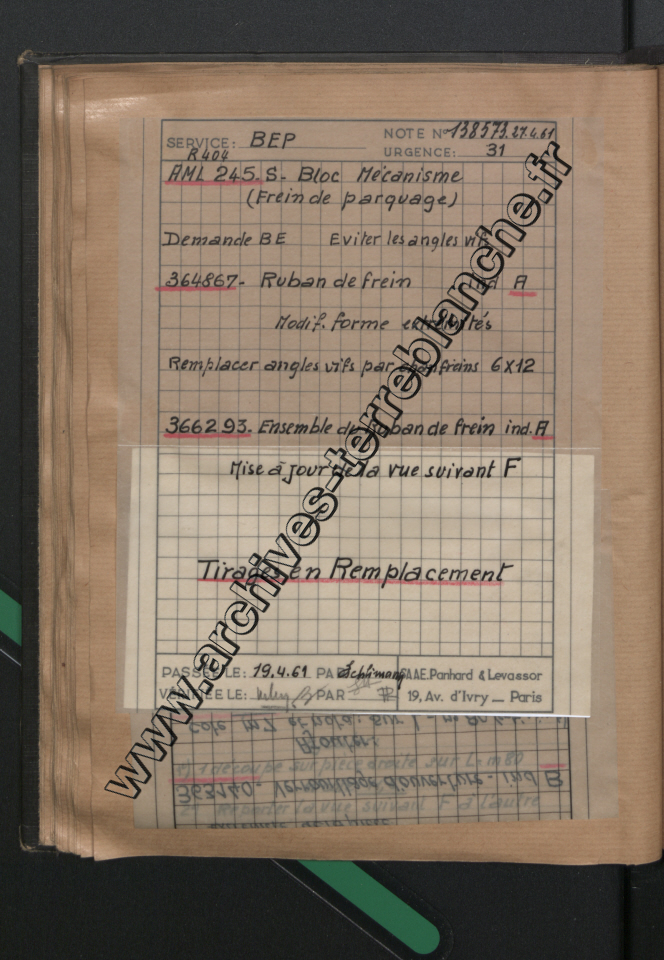 SERVICE: BEP
NOTE N° 138573. 27.4.61
R404
URGENCE: 31
AML 245. S- Bloc Mécanisme
(Frein de parquage)
Demande BE Eviter les angles vifs
364867- Ruban de frein ind A
Modif. forme extrémités
Remplacer angles vifs par chanfreins 6x12
366293. Ensemble de ruban de frein ind. A
Mise à jour de la vue suivant F
Tirages en Remplacement
PASSÉE LE: 19.4.61 PAR
S.A.A.E. Panhard & Levassor
VÉRIFIÉE LE: PAR
19, Av. d'Ivry _ Paris
www.archives-terreblanche.fr
Ajouter:
1 découpe sur pièce droite sur
363140. Verrouillage d'ouverture. ind B
Reporter la vue suivant F à l'autre